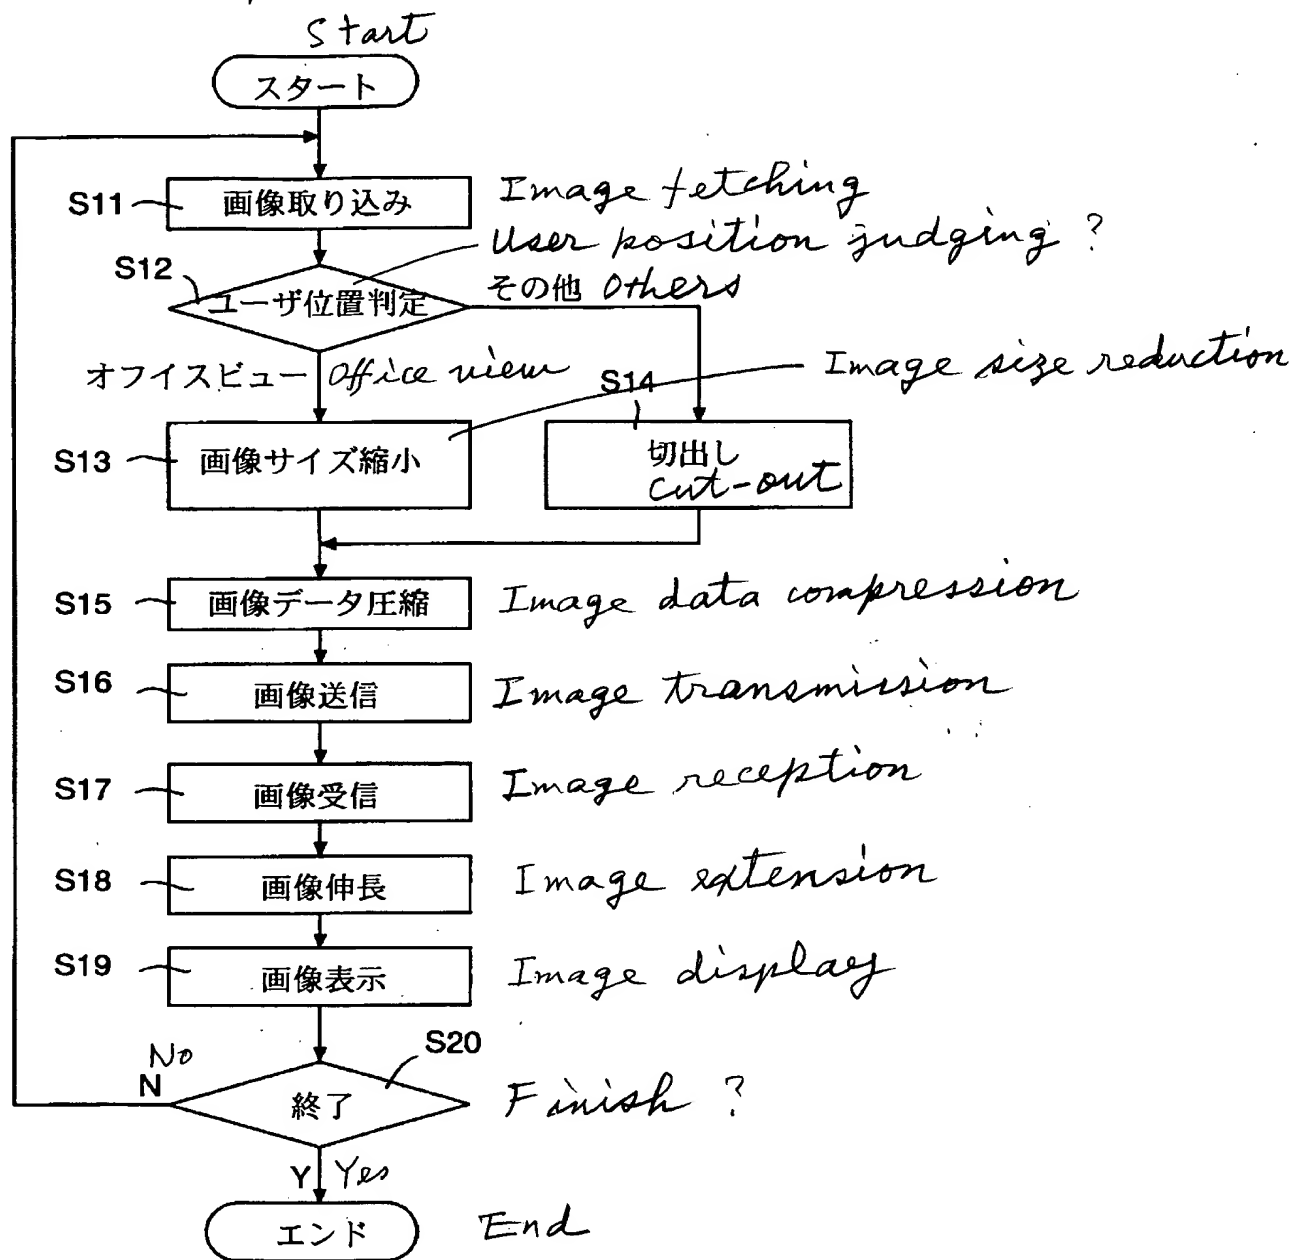 Start
スタート
S11 画像取り込み Image fetching
User position judging ?
S12 ユーザ位置判定 その他 Others
オフイスビュー Office view
Image size reduction
S14
S13 画像サイズ縮小
切出し
Cut-out
S15 画像データ圧縮 Image data compression
S16 画像送信 Image transmission
S17 画像受信 Image reception
S18 画像伸長 Image extension
S19 画像表示 Image display
S20
No
N
終了 Finish ?
Y Yes
エンド End